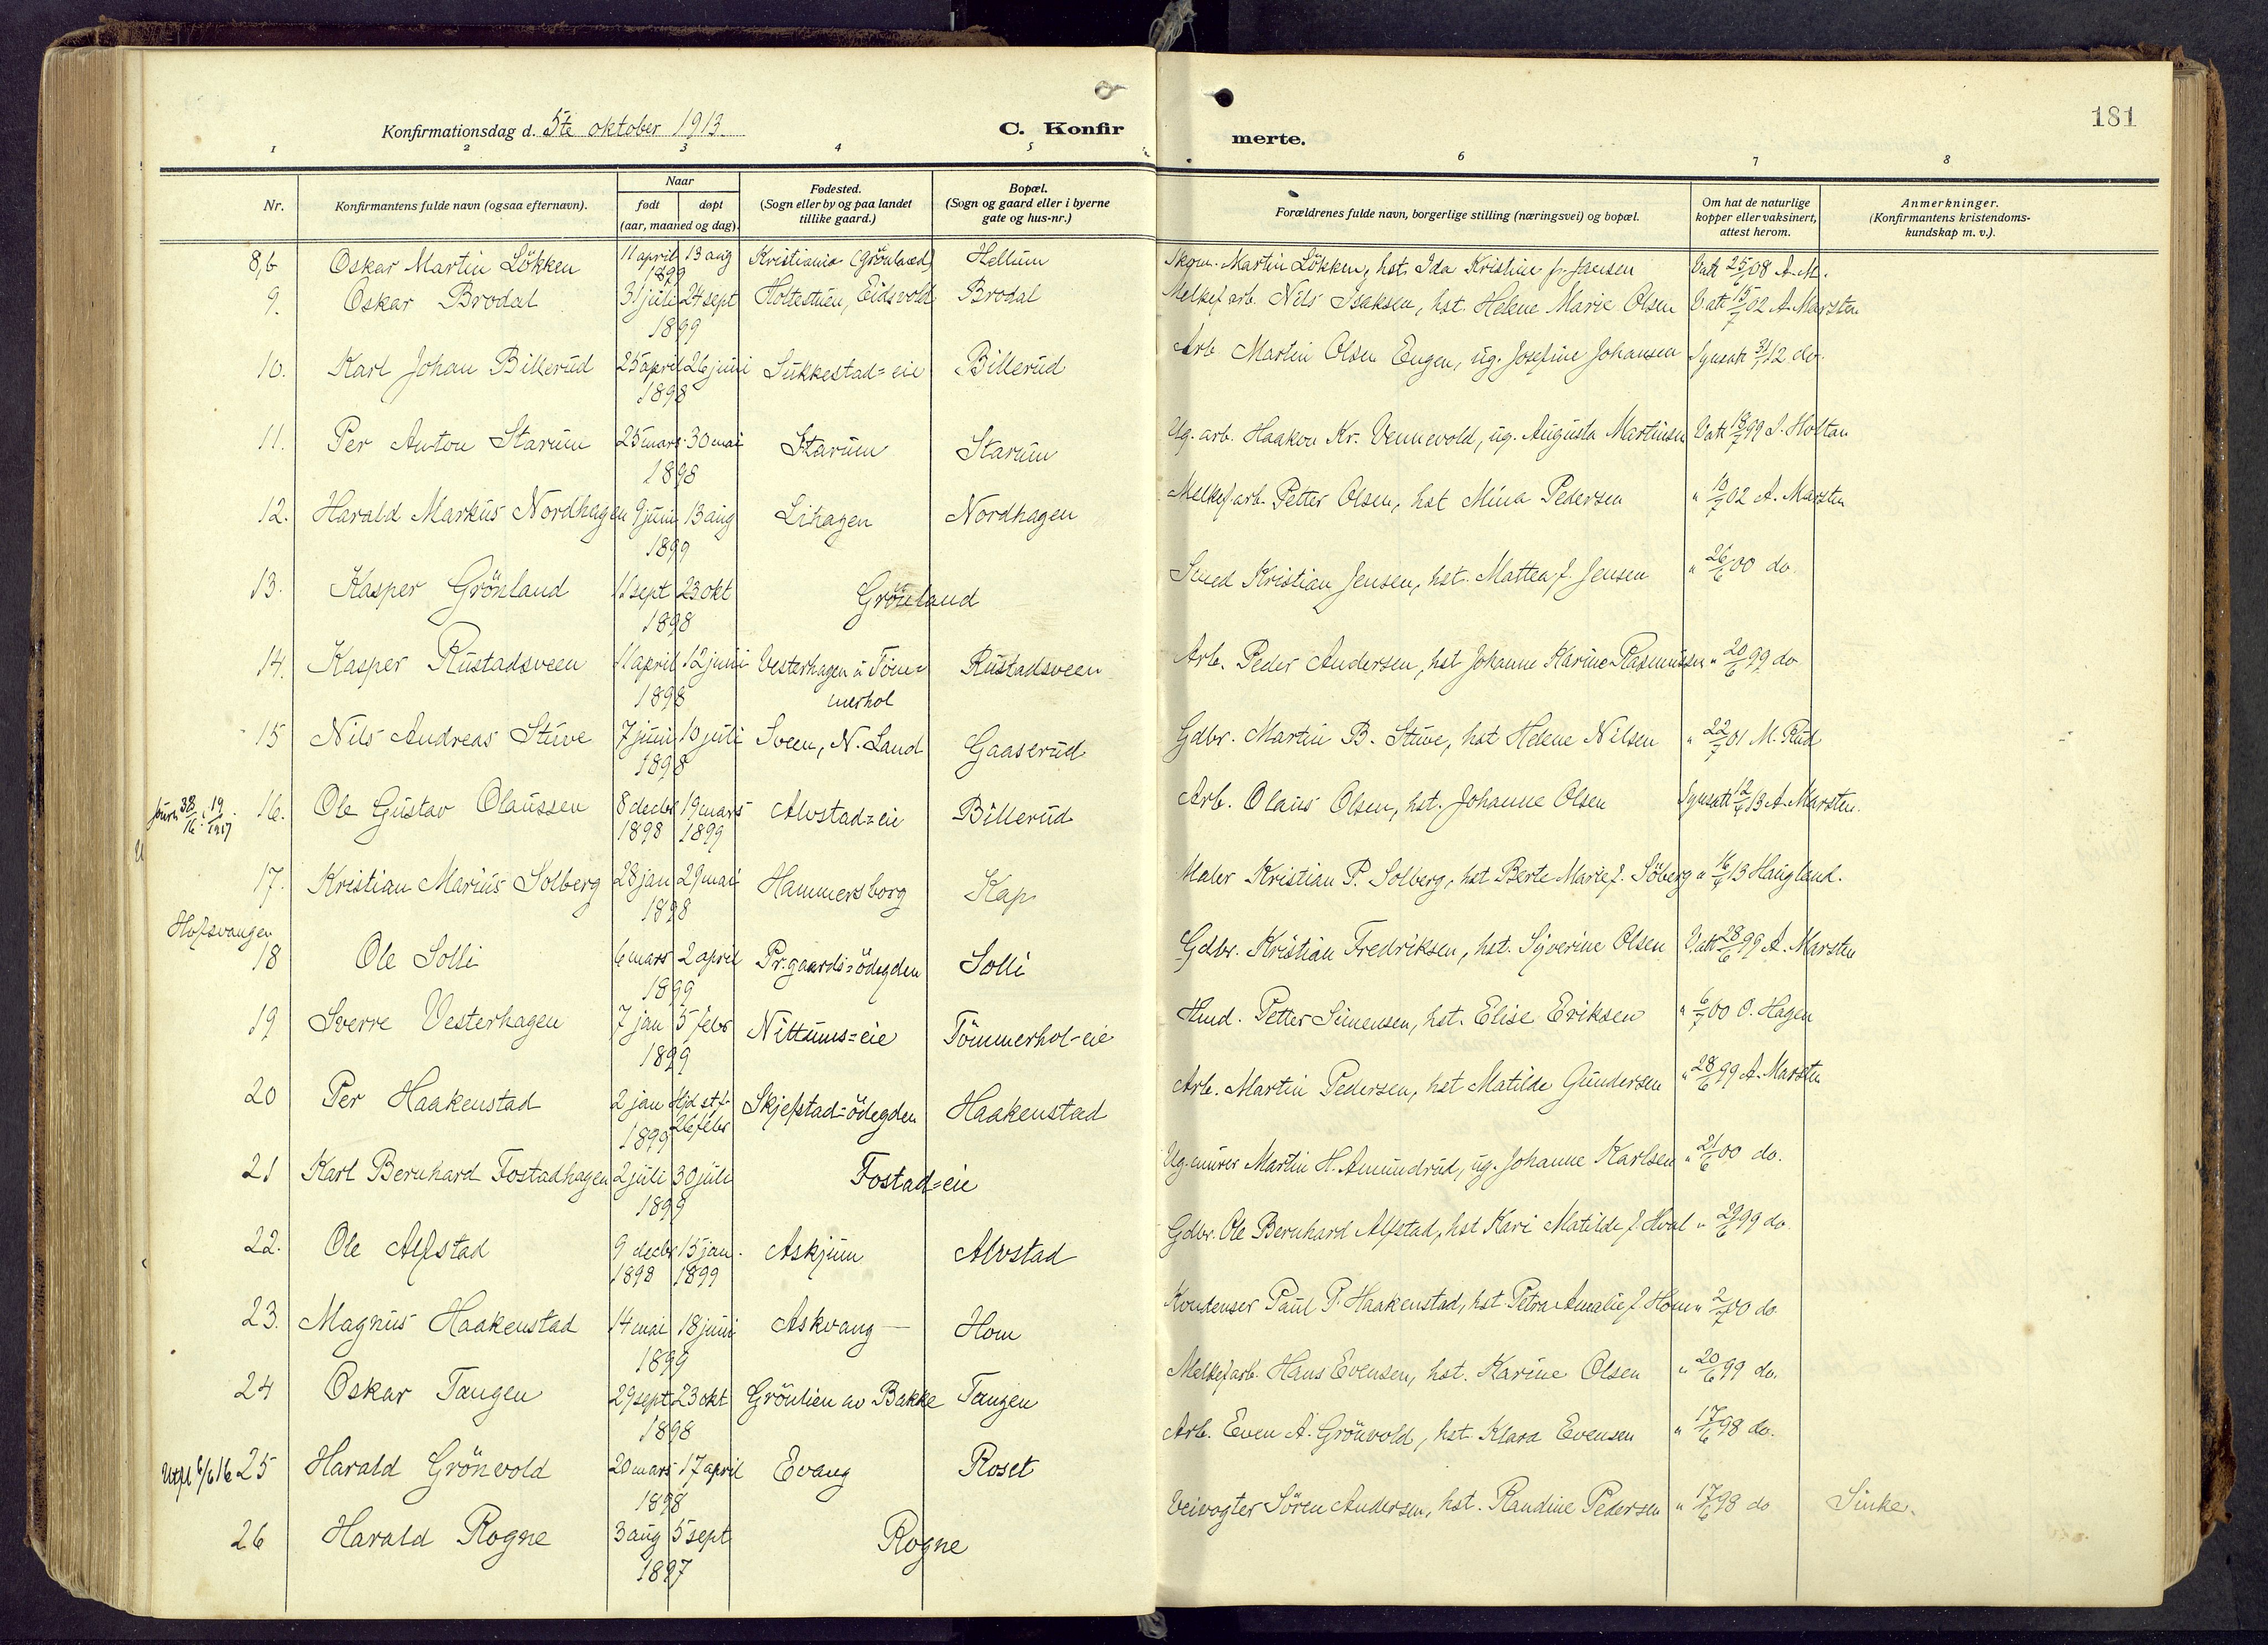 181
Konfirmationsdag d. 5te oktober 1913.
C. Konfirmerte.
1 2 3 4 5 6 7 8
Nr. | Konfirmantens fulde navn (ogsaa efternavn). | Naar født døpt (aar, maaned og dag). | Fødested. (Sogn eller by og paa landet tillike gaard.) | Bopæl. (Sogn og gaard eller i byerne gate og hus-nr.) | Forældrenes fulde navn, borgerlige stilling (næringsvei) og bopæl. | Om hat de naturlige kopper eller vaksinert, attest herom. | Anmerkninger. (Konfirmantens kristendoms-kundskap m. v.).
8,b Oskar Martin Lökken 11 april 13 aug 1899 Kristiania (Grönland) Hellum Skom. Martin Lökken, hst. Ida Kristine f. Jansen Vatt 25/6 08 A. M.
9. Oskar Brodal 31 juli 24 sept 1899 Holtestuen, Eidsvold Brodal Melkef.arb. Nils Isaksen, hst. Helene Marie Olsen Vatt 15/7 02 A. Marsten
10. Karl Johan Billerud 25 april 26 juni 1898 Sukkestad=eie Billerud Arb. Martin Olsen Engen, ug. Josefine Johansen Synsatt 31/12 do.
11. Per Anton Starum 25 mars 30 mai 1898 Starum Starum Ug. arb. Haakon Kr. Vennevold, ug. Augusta Martinsen Vatt 99 S. Holtan
12. Harald Markus Nordhagen 9 juni 13 aug 1899 Lihagen Nordhagen Melkef.arb. Petter Olsen, hst Mina Pedersen " 10/7 02 A. Marsten
13. Kasper Grönland 11 sept 23 okt 1898 Grönland Smed Kristian Jensen, hst. Mattea f. Jensen " 26/6 00 do.
14. Kasper Rustadsveen 11 april 12 juni 1898 Vesterhagen u Tömmerhol Rustadsveen Arb. Peder Andersen, hst Johanne Karine Rasmussen " 20/6 99 do
15 Nils Andreas Stuve 7 juni 10 juli 1898 Sveen, N. Land Gaaserud Gdbr. Martin B. Stuve, hst Helene Nilsen " 22/7 01 M. Rud
Journ 38/16. 19/1917 16. Ole Gustav Olaussen 8 decbr 1898 19 mars 1899 Alvstad=eie Billerud Arb. Olaus Olsen, hst. Johanne Olsen Synsatt 12/9 13 A. Marsten.
17. Kristian Marius Solberg 28 jan 29 mai 1898 Hammersborg Kap Maler Kristian P. Solberg, hst Berte Marie f. Söberg " 16/9 13 Haugland.
Hofsvangen
18 Ole Solli 6 mars 2 april 1899 Pr.gaards=ödegden Solli Gdbr. Kristian Fredriksen, hst. Syverine Olsen Vatt 28/6 99 A. Marsten
19 Sverre Vesterhagen 7 jan 5 febr 1899 Nittums=eie Tömmerhol-eie Hmd. Petter Simensen, hst. Elise Eriksen " 6/7 00 O. Hagen
20 Per Haakenstad 2 jan Hjd. stf. 26 febr 1899 Skjefstad=ödegden Haakenstad Arb. Martin Pedersen, hst Matilde Gundersen " 28/6 99 A. Marsten
21 Karl Bernhard Fostadhagen 2 juli 30 juli 1899 Fostad=eie Ug. murer Martin H. Amundrud, ug. Johanne Karlsen " 21/6 00 do.
22. Ole Alfstad 9 decbr 1898 15 jan. 1899 Askjum Alvstad Gdbr. Ole Bernhard Alfstad, hst Kari Matilde f. Hval " 29/6 99 do.
23. Magnus Haakenstad 14 mai 18 juni 1899 Askvang Hom Kondenser Paul P. Haakenstad, hst Petra Amalie f. Hom " 2/7 00 do.
24 Oskar Tangen 29 sept 23 okt 1898 Grönlien av Bakke Tangen Melkef.arb. Hans Evensen, hst. Karine Olsen " 20/6 99 do.
Utfl 6/6 16 25 Harald Grönvold 20 mars 17 april 1898 Evang Roset Arb. Even A. Grönvold, hst. Klara Evensen " 17/6 98 do.
26 Harald Rogne 3 aug 5 sept 1897 Rogne Veivogter Sören Andersen, hst. Randine Pedersen " 17/6 98 do Sinke.